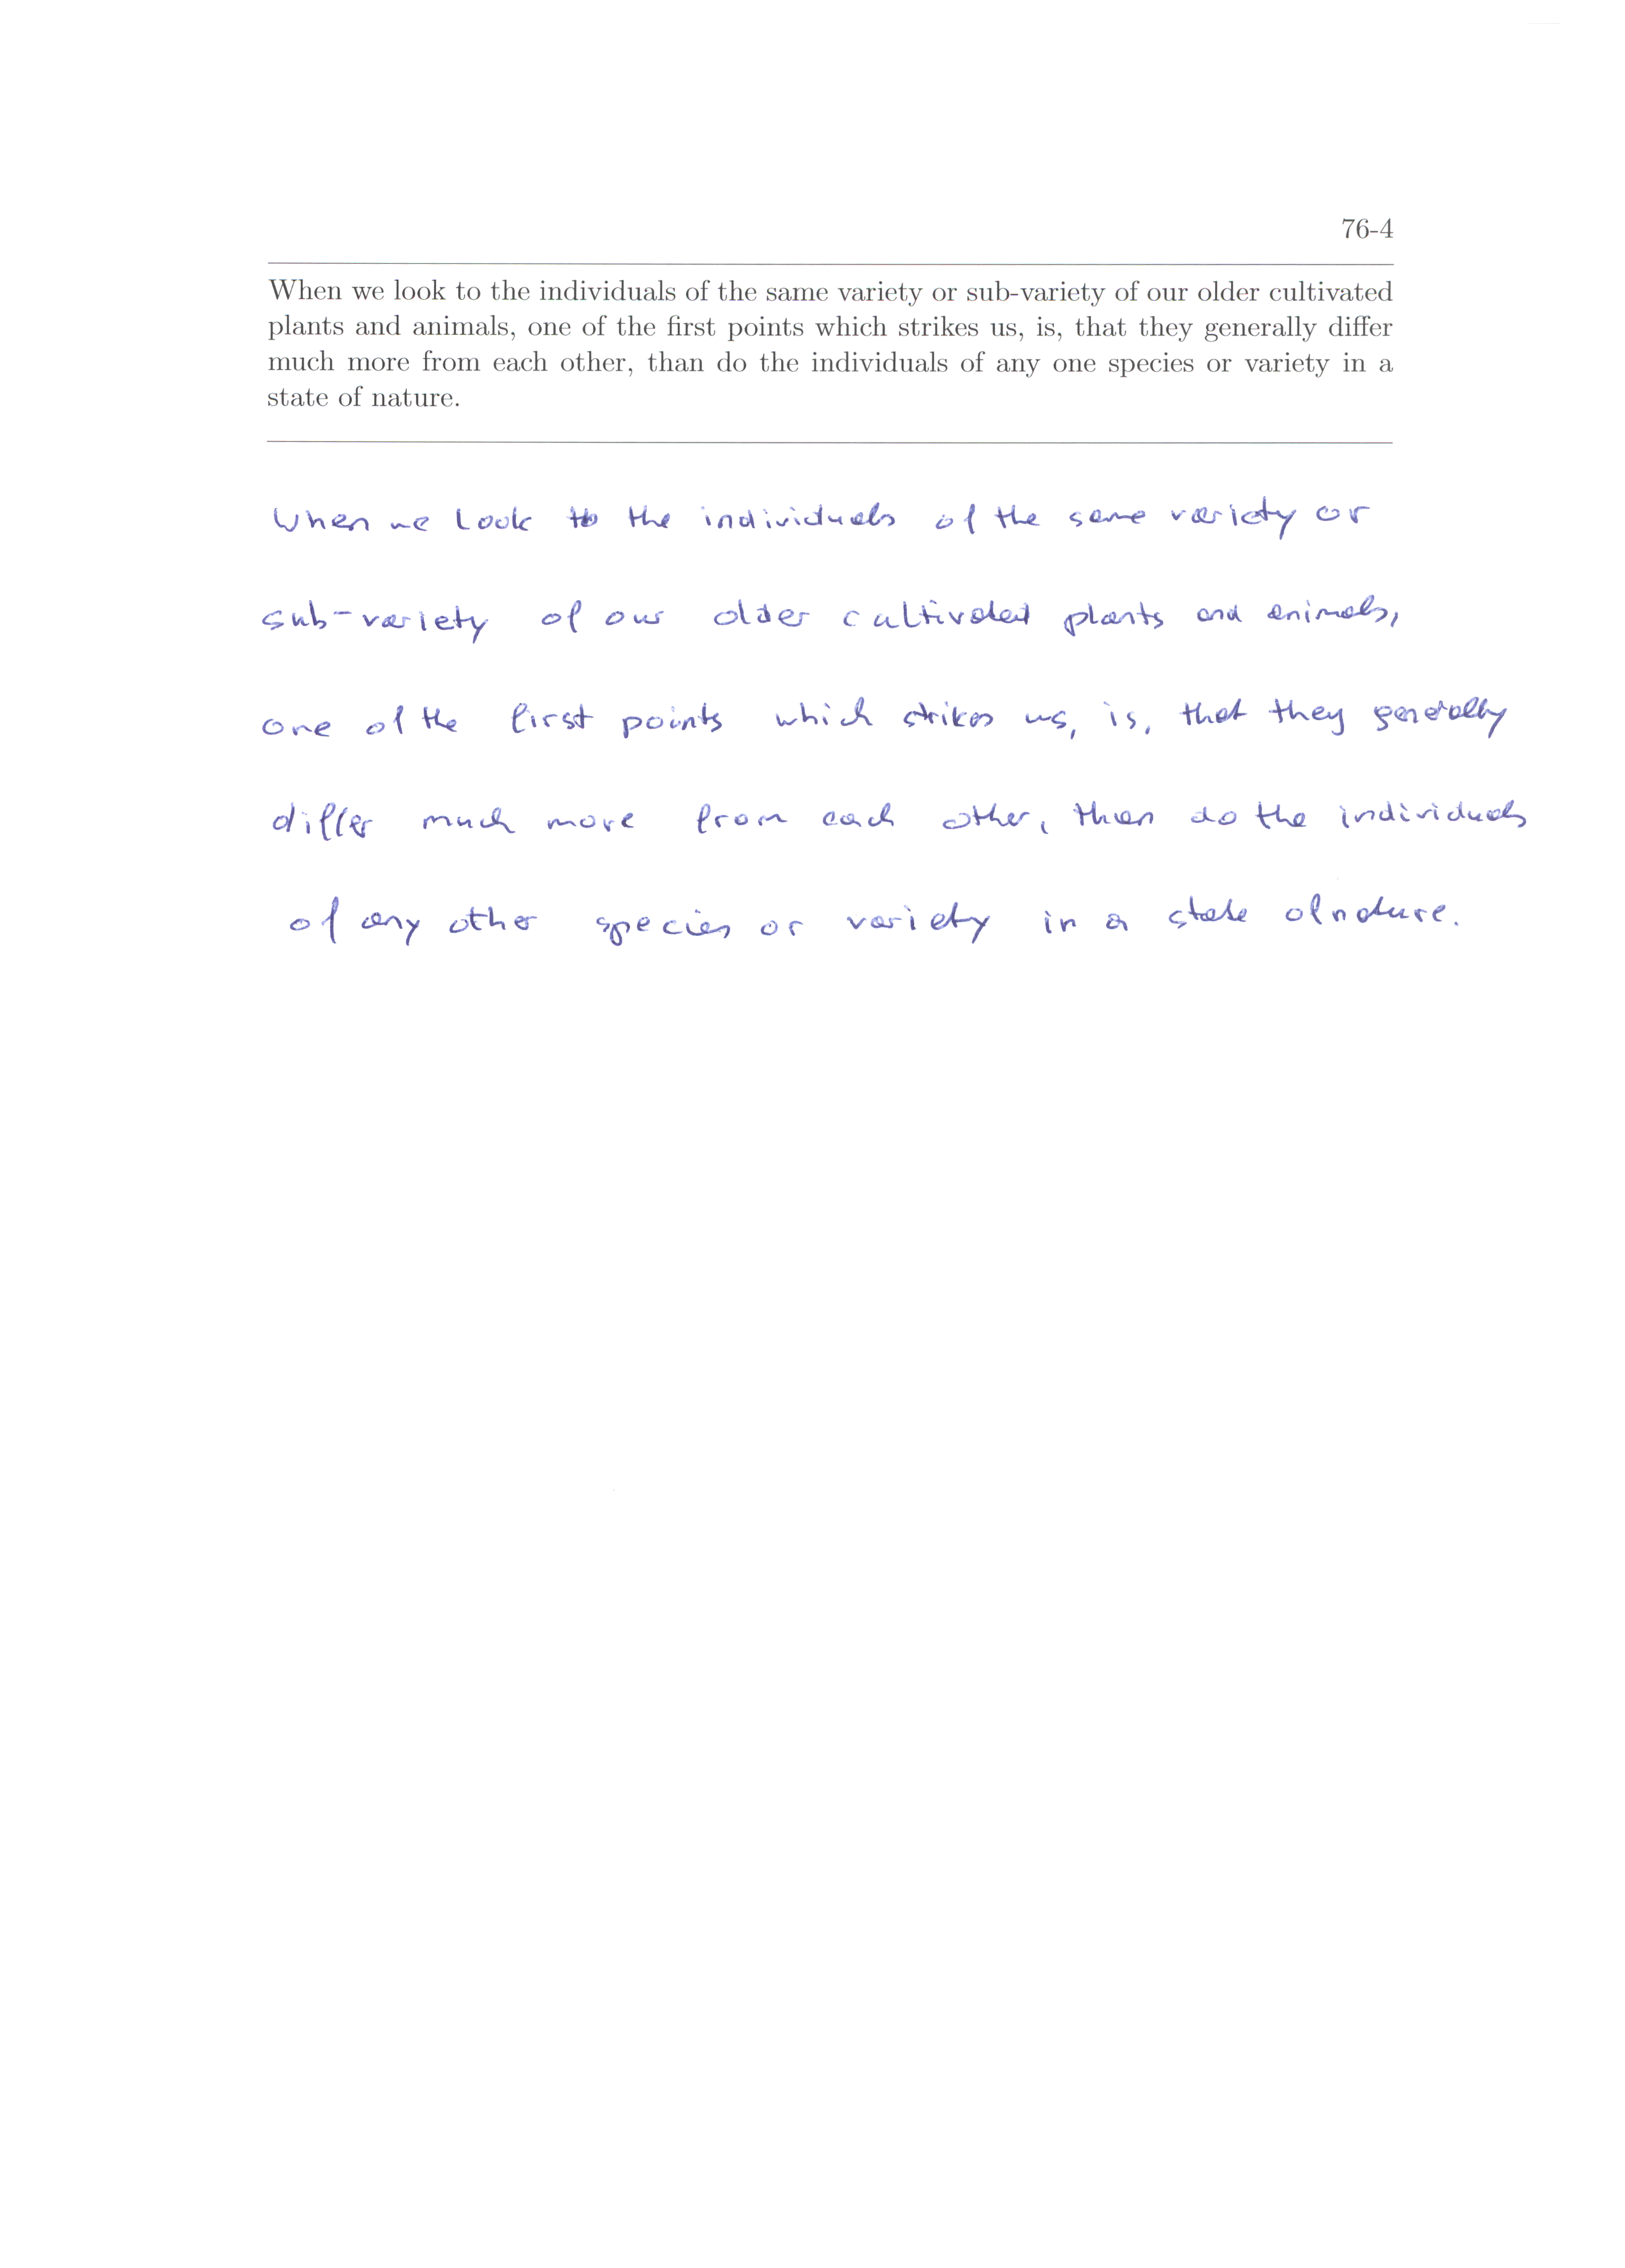 76-4
When we look to the individuals of the same variety or sub-variety of our older cultivated
plants and animals, one of the first points which strikes us, is, that they generally differ
much more from each other, than do the individuals of any one species or variety in a
state of nature.
When we look to the individuals of the same variety or
sub-variety of our older cultivated plants and animals,
one of the first points which strikes us, is, that they generally
differ much more from each other, than do the individuals
of any other species or variety in a state of nature.